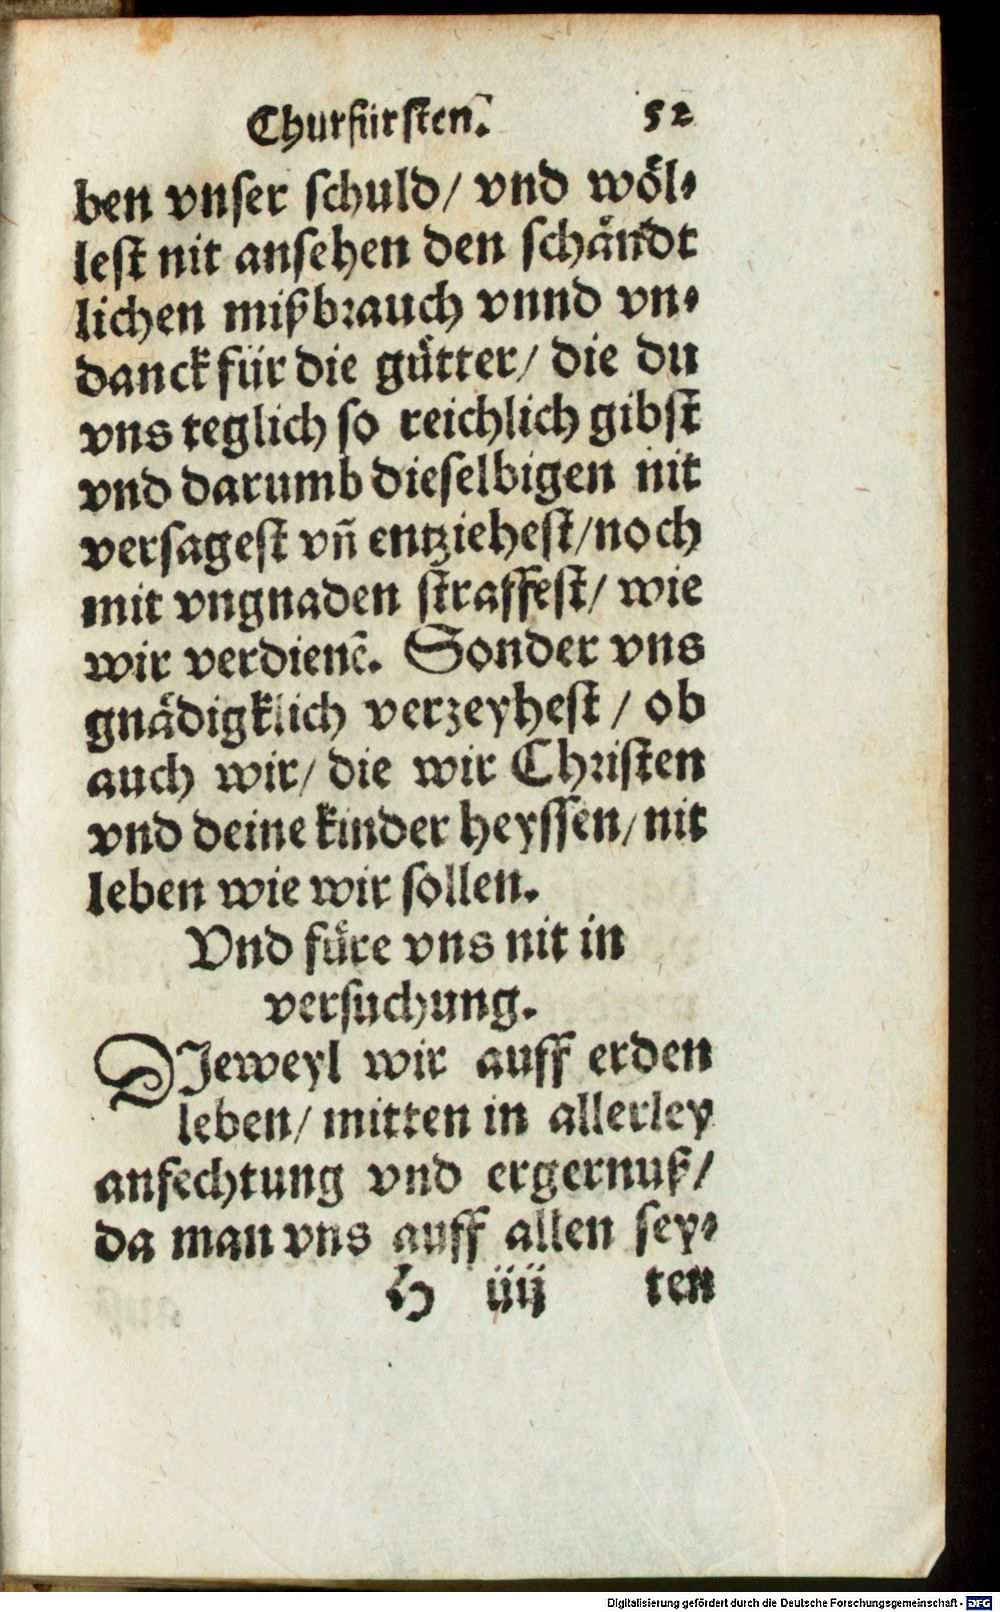 Churfürsten. 52
ben vnser schuld/ vnd wöl-
lest nit ansehen den schändt
lichen mißbrauch vnnd vn-
danck für die gůtter/ die du
vns teglich so reichlich gibst
vnd darumb dieselbigen nit
versagest vñ entziehest/noch
mit vngnaden straffest/ wie
wir verdienẽ. Sonder vns
gnädigklich verzeyhest / ob
auch wir/ die wir Christen
vnd deine kinder heyssen/nit
leben wie wir sollen.
Vnd füre vns nit in
versuchung.
DJeweyl wir auff erden
leben/ mitten in allerley
anfechtung vnd ergernuß/
da man vns auff allen sey-
H iiij ten
Digitalisierung gefördert durch die Deutsche Forschungsgemeinschaft - DFG